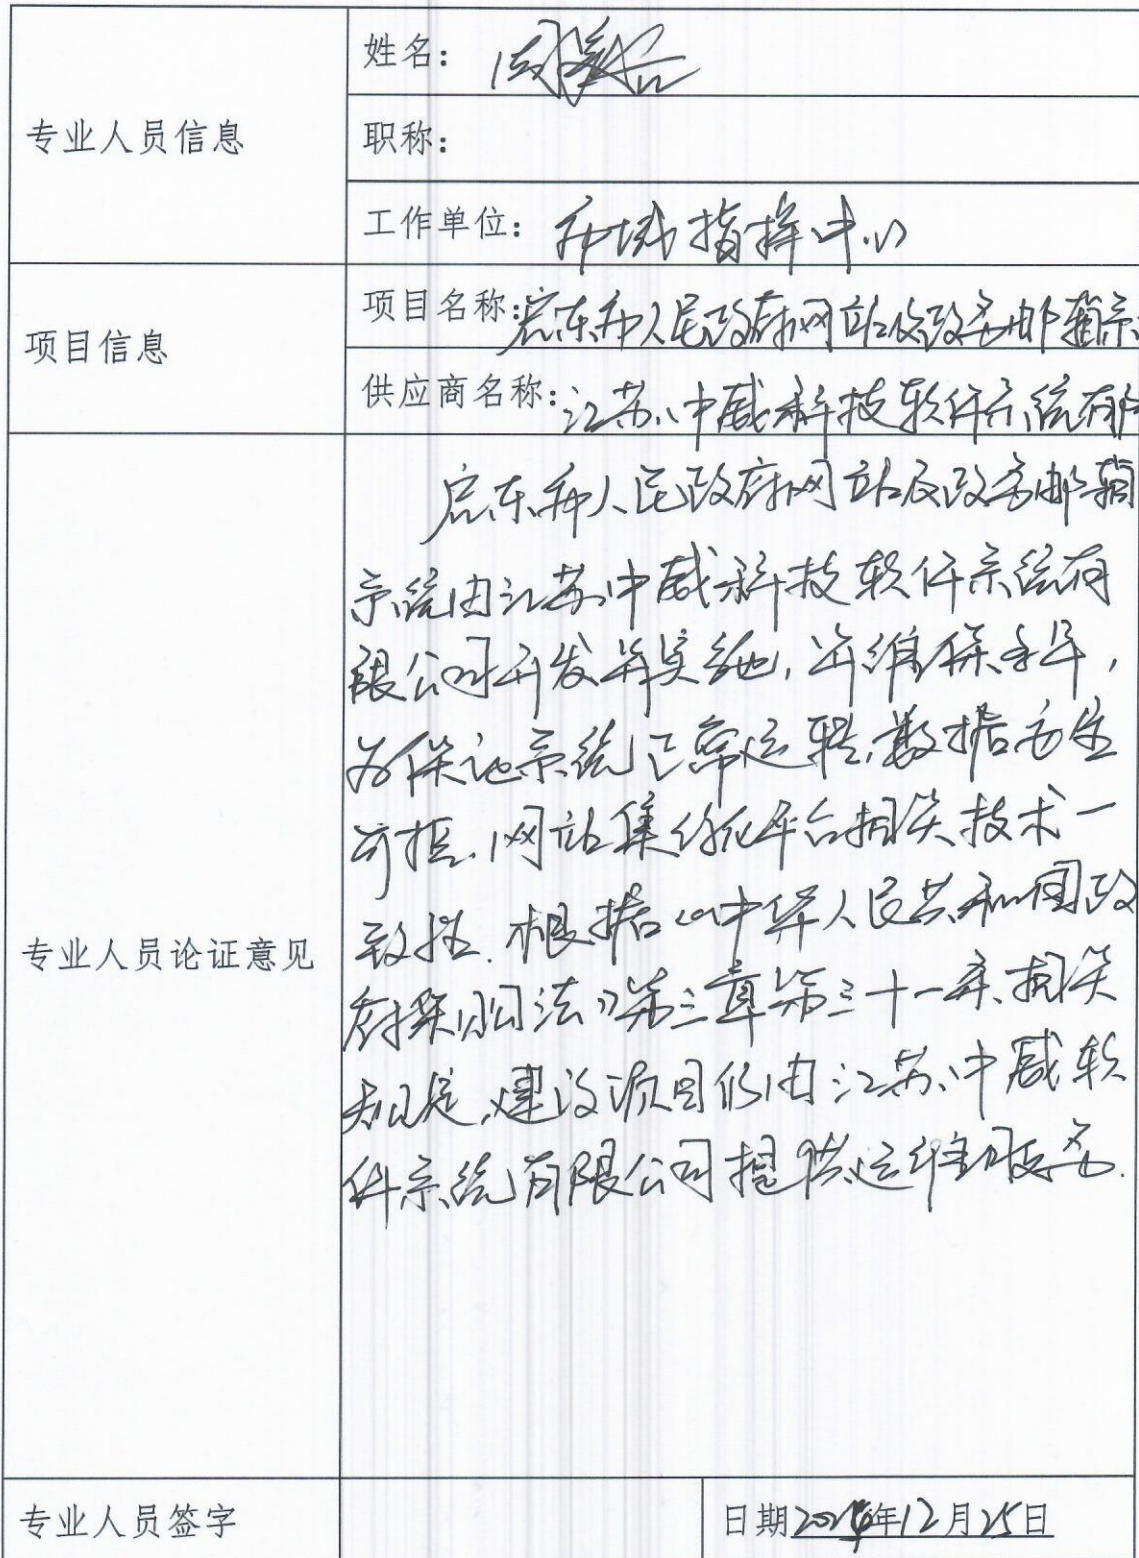 专业人员信息
姓名：周
职称：
工作单位：市域指挥中心
项目信息
项目名称：启东市人民政府网站及政务邮箱系
供应商名称：江苏中威科技软件系统有
专业人员论证意见
启东市人民政府网站及政务邮箱
系统由江苏中威科技软件系统有
限公司开发并实施，并维保多年，
为保证系统正常运转，数据安全
可控，网站集约化平台相关技术一
致性。根据《中华人民共和国政
府采购法》第三章第三十一条相关
规定，建议项目仍由江苏中威软
件系统有限公司提供运维服务.
专业人员签字
日期2024年12月25日